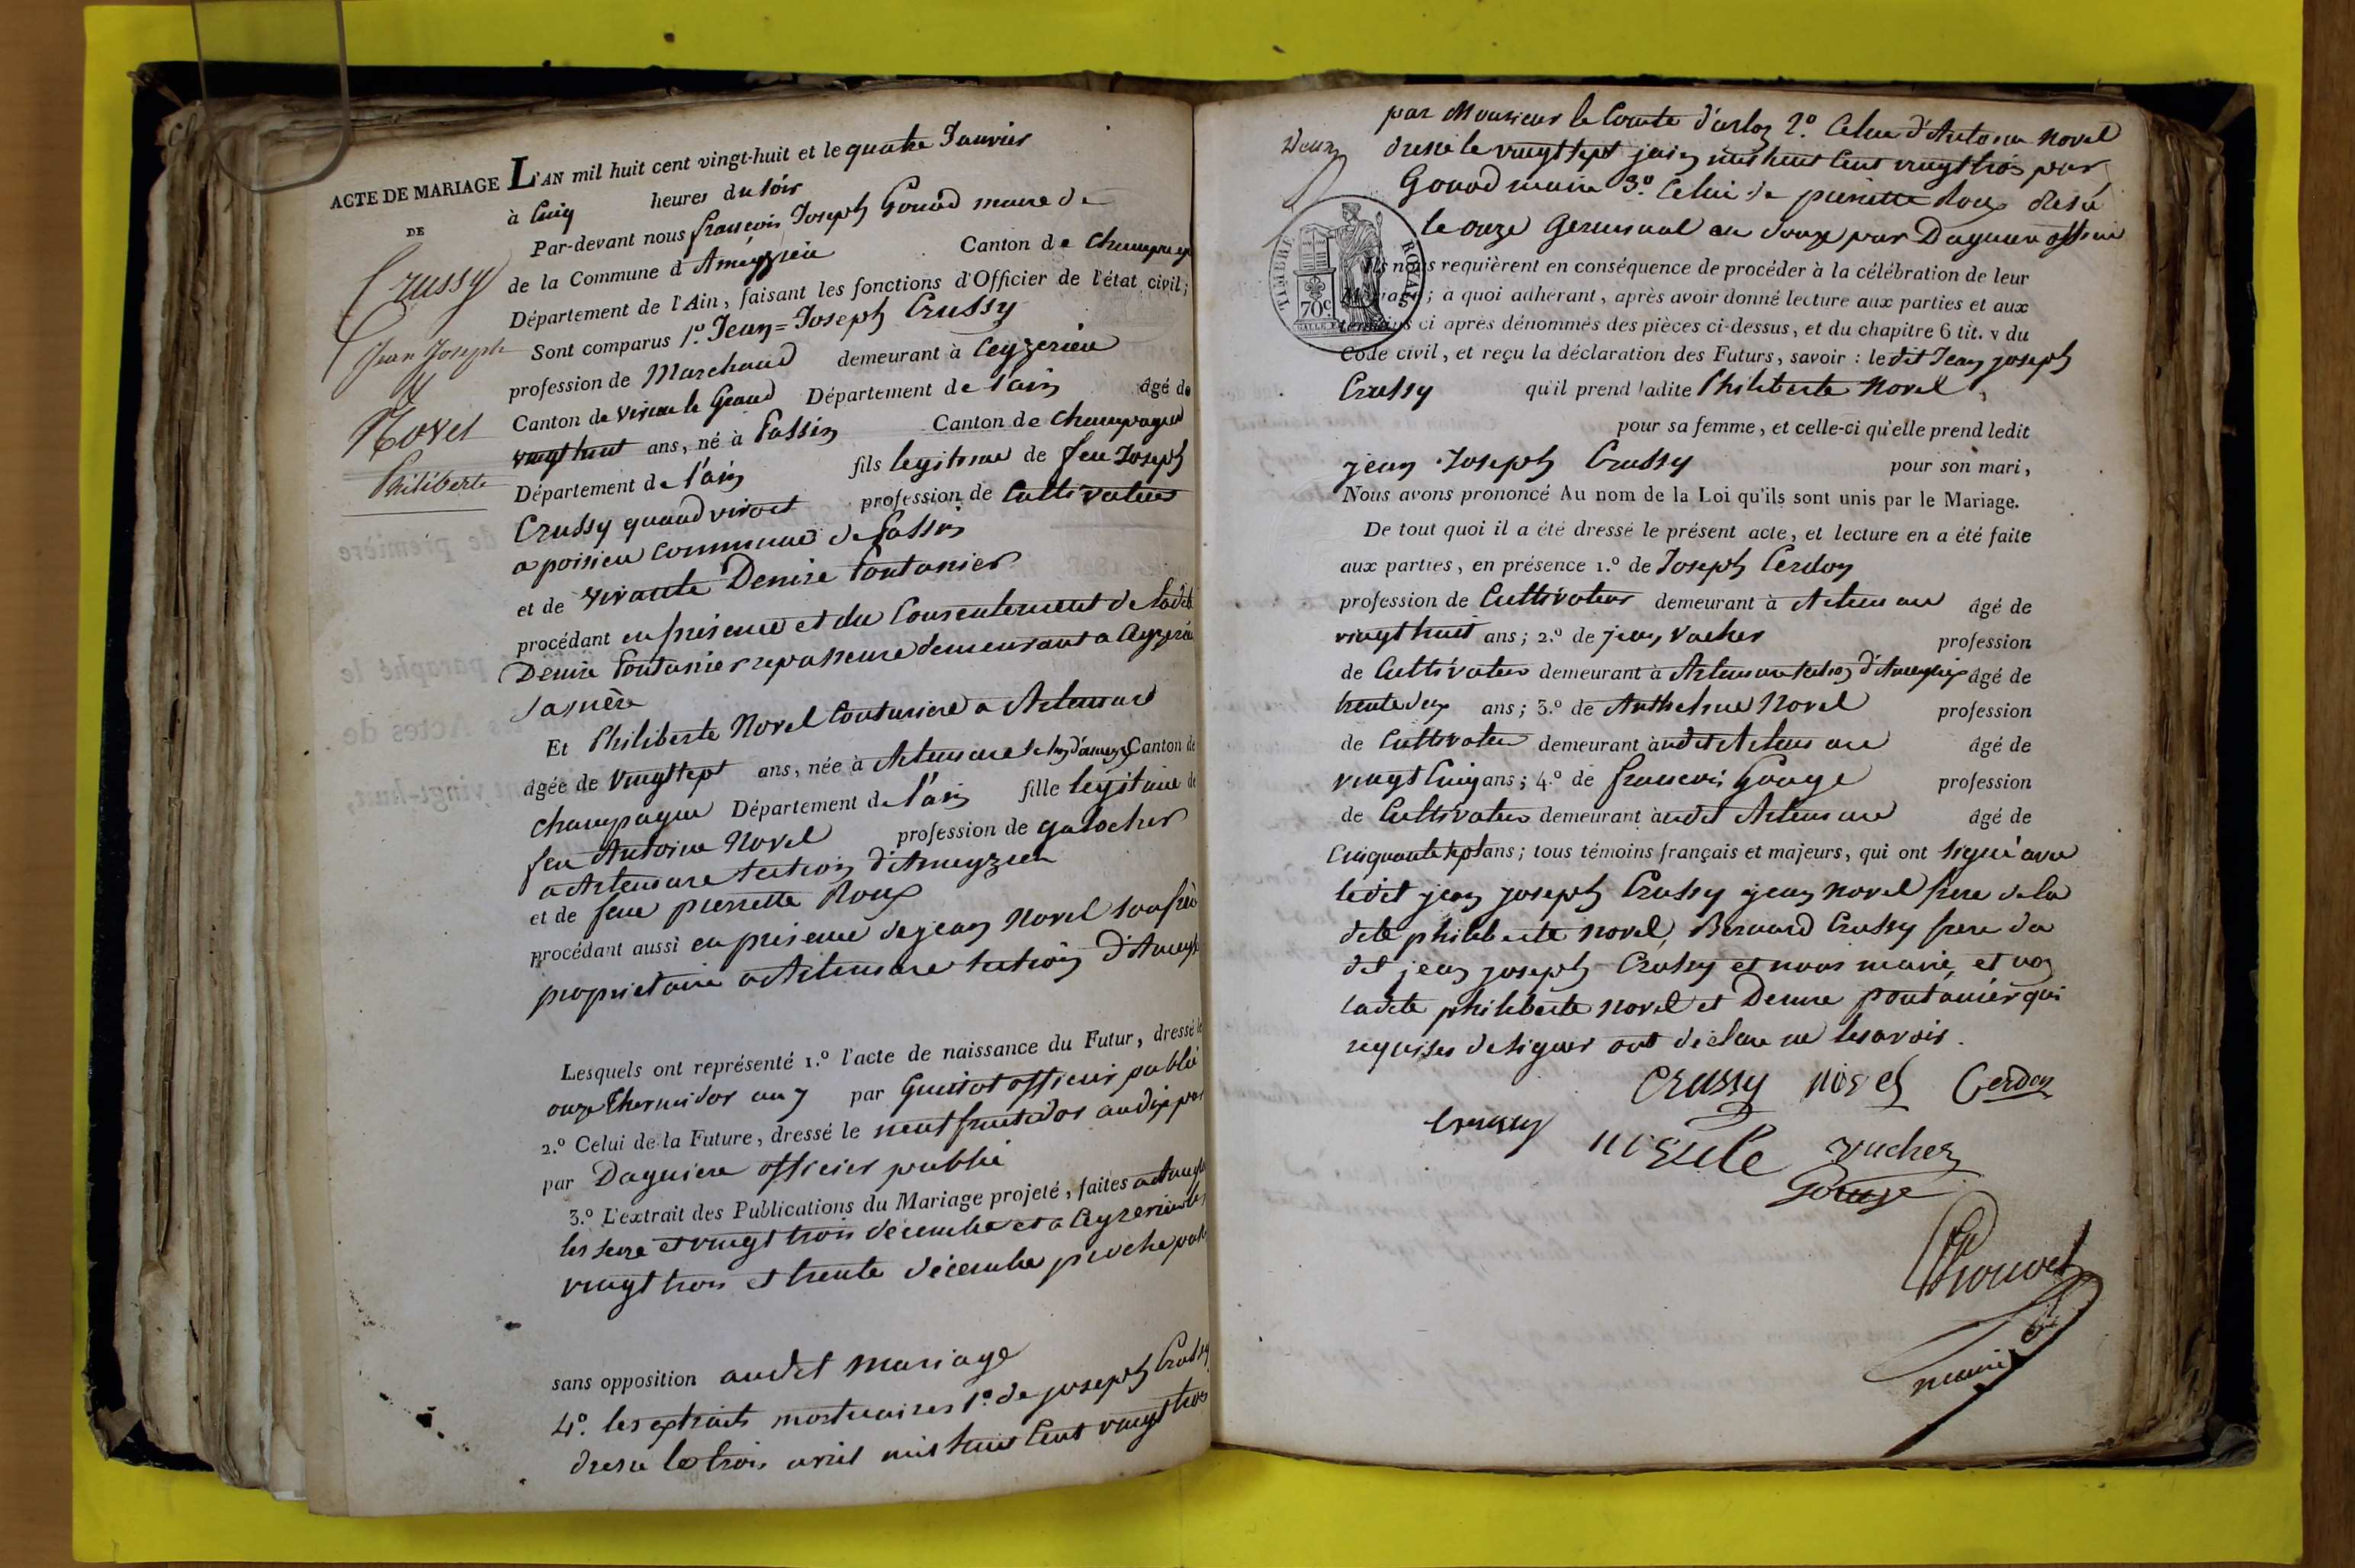 ACTE DE MARIAGE
DE
Crussy
Jean Joseph
&
Novel
Philiberte
L'AN mil huit cent vingt-huit et le quatre Janvier
à Cinq heures du soir
Par-devant nous françois Joseph Gonod maire de
de la Commune d'Ameyzieu Canton de Champagne
Département de l'Ain, faisant les fonctions d'Officier de l'état civil;
Sont comparus 1.º Jean=Joseph Crussy
profession de Marchand demeurant à Ceyzerieu
Canton de virieu le Grand Département de l'ain âgé de
vingt huit ans, né à Passin Canton de Champagne
Département de l'ain fils legitime de feu Joseph
Crussy quand vivoit profession de Cultivateur
a poisieu commune de Passin
et de vivante Denise Pontanier
procédant en présence et du Consentement de ladite
Denise Pontanier repasseuse demeurant a Ceyzerieu
sa mère
Et Philiberte Novel Couturiere a Artemare
âgée de vingt sept ans, née à Artemare Canton de
champagne Département de l'ain fille legitime de
feu Antoine Novel profession de galocher
a Artemare section d'Ameyzieu
et de feue pierrette Roux
procédant aussi en présence de jean Novel son frère
proprietaire a Artemare section d'Ameyz
Lesquels ont représenté 1.º l'acte de naissance du Futur, dressé le
onze Thermidor an 7 par officier public
2.º Celui de la Future, dressé le neuf fructidor an dix par
par Daguiere officier public
3.º L'extrait des Publications du Mariage projeté, faites a
les seize et vingt trois decembre et a Ceyzerieu les
vingt trois et trente décembre proche passé
sans opposition audit mariage
4.º les extraits mortuaires 1.º de joseph Crussy
dressé le trois avril mil huit Cent vingt trois
Deux
par Monsieur le Comte d'arloz 2.º Celui d'Antoine Novel
dressé le vingt sept juin mil huit Cent vingt trois par
Gonod maire 3.º Celui de pierrette Roux dressé
le onze Germinal an douze par Daguiere officier
TIMBRE ROYAL
70c
Ils nous requièrent en conséquence de procéder à la célébration de leur
Mariage; à quoi adhérant, après avoir donné lecture aux parties et aux
témoins ci après dénommés des pièces ci-dessus, et du chapitre 6 tit. v du
Code civil, et reçu la déclaration des Futurs, savoir: le dit Jean joseph
Crussy qu'il prend ladite Philiberte Novel,
pour sa femme, et celle-ci qu'elle prend ledit
jean Joseph Crussy pour son mari,
Nous avons prononcé Au nom de la Loi qu'ils sont unis par le Mariage.
De tout quoi il a été dressé le présent acte, et lecture en a été faite
aux parties, en présence 1.º de Joseph Cerdon
profession de Cultivateur demeurant à Artemare âgé de
vingt huit ans; 2.º de jean Vacher profession
de Cultivateur demeurant à Artemare section d'Ameyzieu âgé de
trente deux ans; 3.º de Anthelme Novel profession
de Cultivateur demeurant audit Artemare âgé de
vingt Cinq ans; 4.º de francois Gouge profession
de Cultivateur demeurant audit Artemare âgé de
Cinquante sept ans; tous témoins français et majeurs, qui ont signé avec
ledit jean joseph Crussy jean novel frere de la
dite philiberte novel, Bernard Crussy frere du
dit jean joseph Crussy et nous maire, et non
ladite philiberte novel et Denise pontanier qui
requises de signer ont déclaré ne le savoir.
Crussy novel Cerdon
Crussy
vacher
Gouge
maire